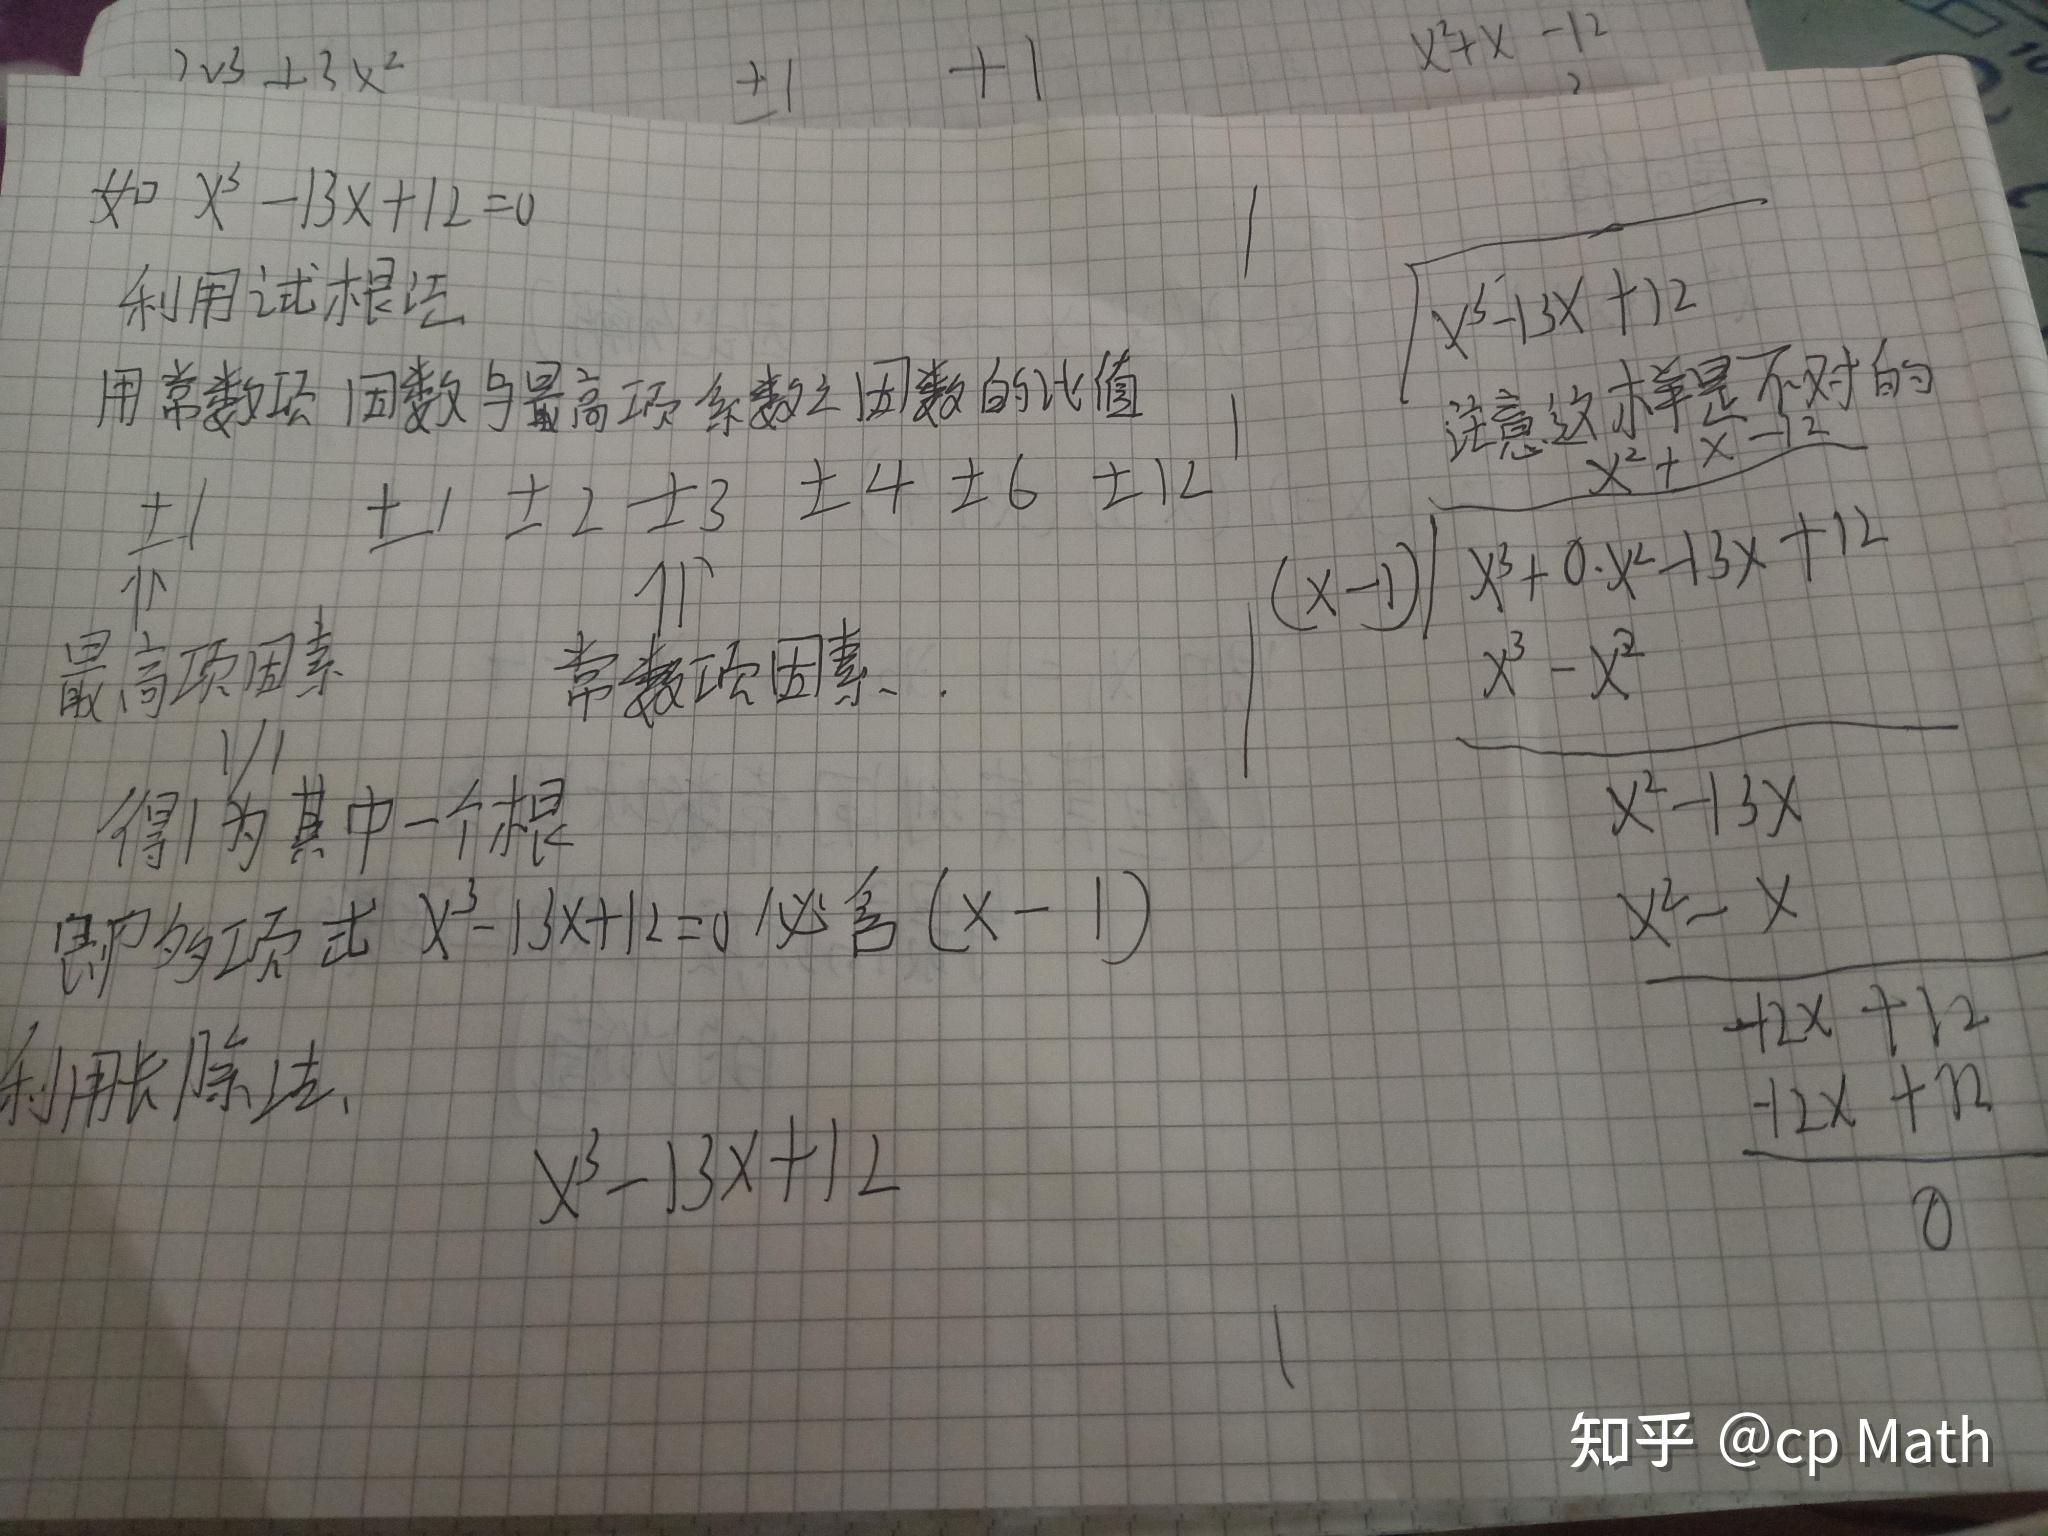 +3x²
±1
+1
x²+x-12
如 x³-13x+12=0
利用试根法
用常数项因数与最高项系数之因数的比值
±1 ±1 ±2 ±3 ±4 ±6 ±12
最高项因素 常数项因素.
得1为其中一个根
即多项式 x³-13x+12=0 必含(x-1)
利用长除法、
x³-13x+12
x³-13x+12
注意这样是不对的
x²+x-12
(x-1) x³+0·x²-13x+12
x³-x²
x²-13x
x²-x
-12x+12
-12x+12
0
知乎 @cp Math